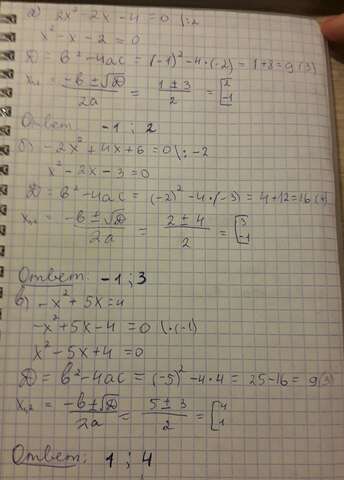 а) 2x² - 2x - 4 = 0 |:2
x² - x - 2 = 0
D = b² - 4ac = (-1)² - 4·(-2) = 1+8 = 9 (3)
x₁,₂ = (-b ± √D)/2a = (1 ± 3)/2 = [2 -1
Ответ: -1 ; 2
б) -2x² + 4x + 6 = 0 |: -2
x² - 2x - 3 = 0
D = b² - 4ac = (-2)² - 4·(-3) = 4 + 12 = 16 (4)
x₁,₂ = (-b ± √D)/2a = (2 ± 4)/2 = [3 -1
Ответ: -1 ; 3
в) -x² + 5x = 4
-x² + 5x - 4 = 0 |·(-1)
x² - 5x + 4 = 0
D = b² - 4ac = (-5)² - 4·4 = 25 - 16 = 9 (3)
x₁,₂ = (-b ± √D)/2a = (5 ± 3)/2 = [4 1
Ответ: 1 ; 4